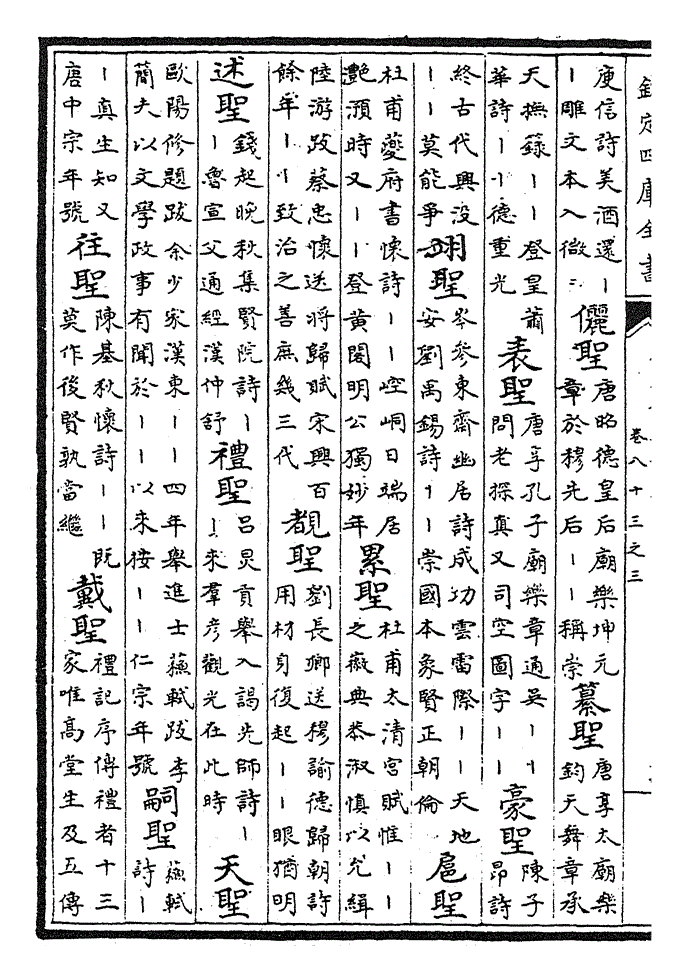 欽定四庫全書
卷八十三之三
庾信詩美酒還丨丨雕文本入徽 儷聖 唐昭德皇后廟樂坤元章於穆先后丨丨稱崇 纂聖 唐享太廟樂鈞天舞章承
天撫籙丨丨登皇蕭華詩丨丨德重光 表聖 唐享孔子廟樂章通吳丨丨問老探真又司空圖字丨丨 豪聖 陳子昂詩
終古代興没丨丨莫能爭 翊聖 岑參東齋幽居詩成功雲雷際丨丨天地安劉禹錫詩丨丨崇國本象賢正朝倫 扈聖
杜甫夔府書懷詩丨丨崆峒日端居灩澦時又丨丨登黄閣明公獨妙年 累聖 杜甫太清宮賦惟丨丨之徽典恭淑慎以允緝
陸游跋蔡忠懷送將歸賦宋興百餘年丨丨致治之善庶幾三代 覩聖 劉長卿送穆諭德歸朝詩用材身復起丨丨眼猶明
述聖 錢起晚秋集賢院詩丨丨魯宣父通經漢仲舒 禮聖 呂炅貢舉入謁先師詩丨丨來羣彦觀光在此時 天聖
歐陽修題跋余少家漢東丨丨四年舉進士蘇軾跋李簡夫以文學政事有聞於丨丨以來按丨丨仁宗年號 嗣聖 蘇軾詩丨
丨真生知又唐中宗年號 往聖 陳基秋懷詩丨丨既莫作後賢孰當繼 戴聖 禮記序傳禮者十三家唯高堂生及五傳